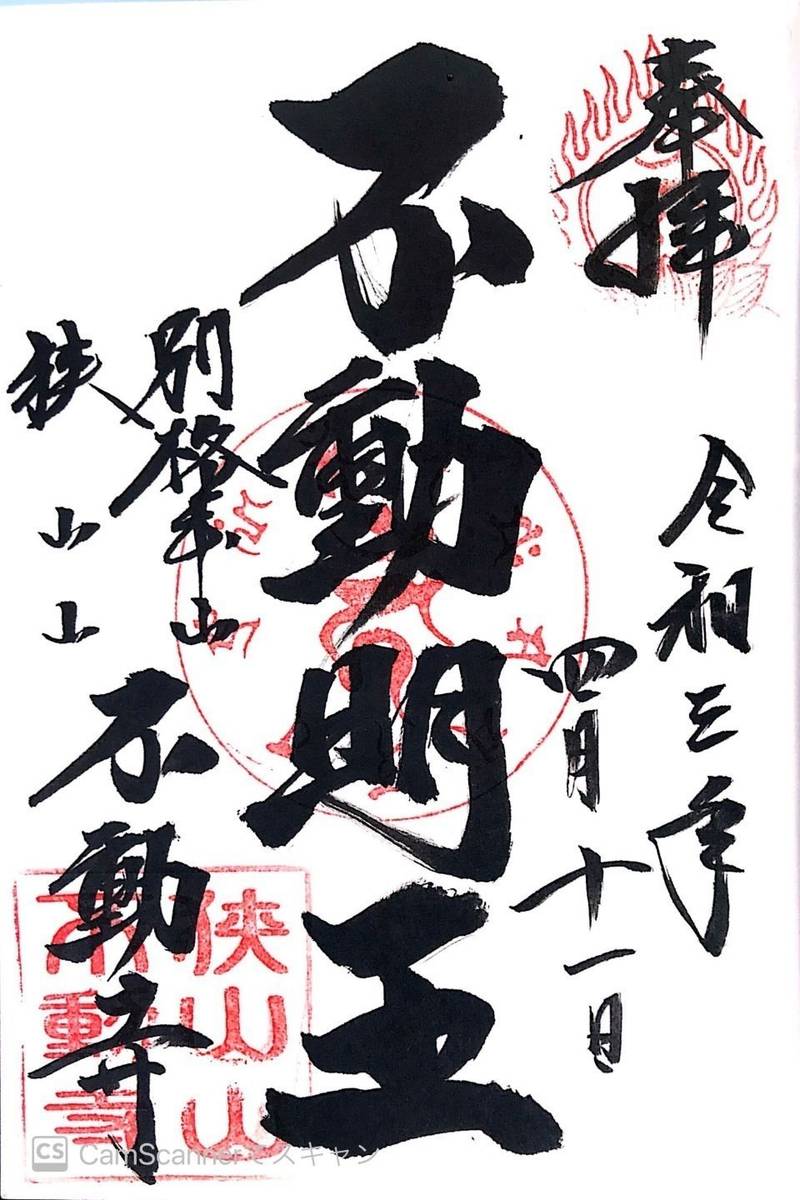 奉拝
令和三年
四月十一日
不動明王
別格本山
狭山山
不動寺
狭山山
不動寺
CS CamScannerでスキャン